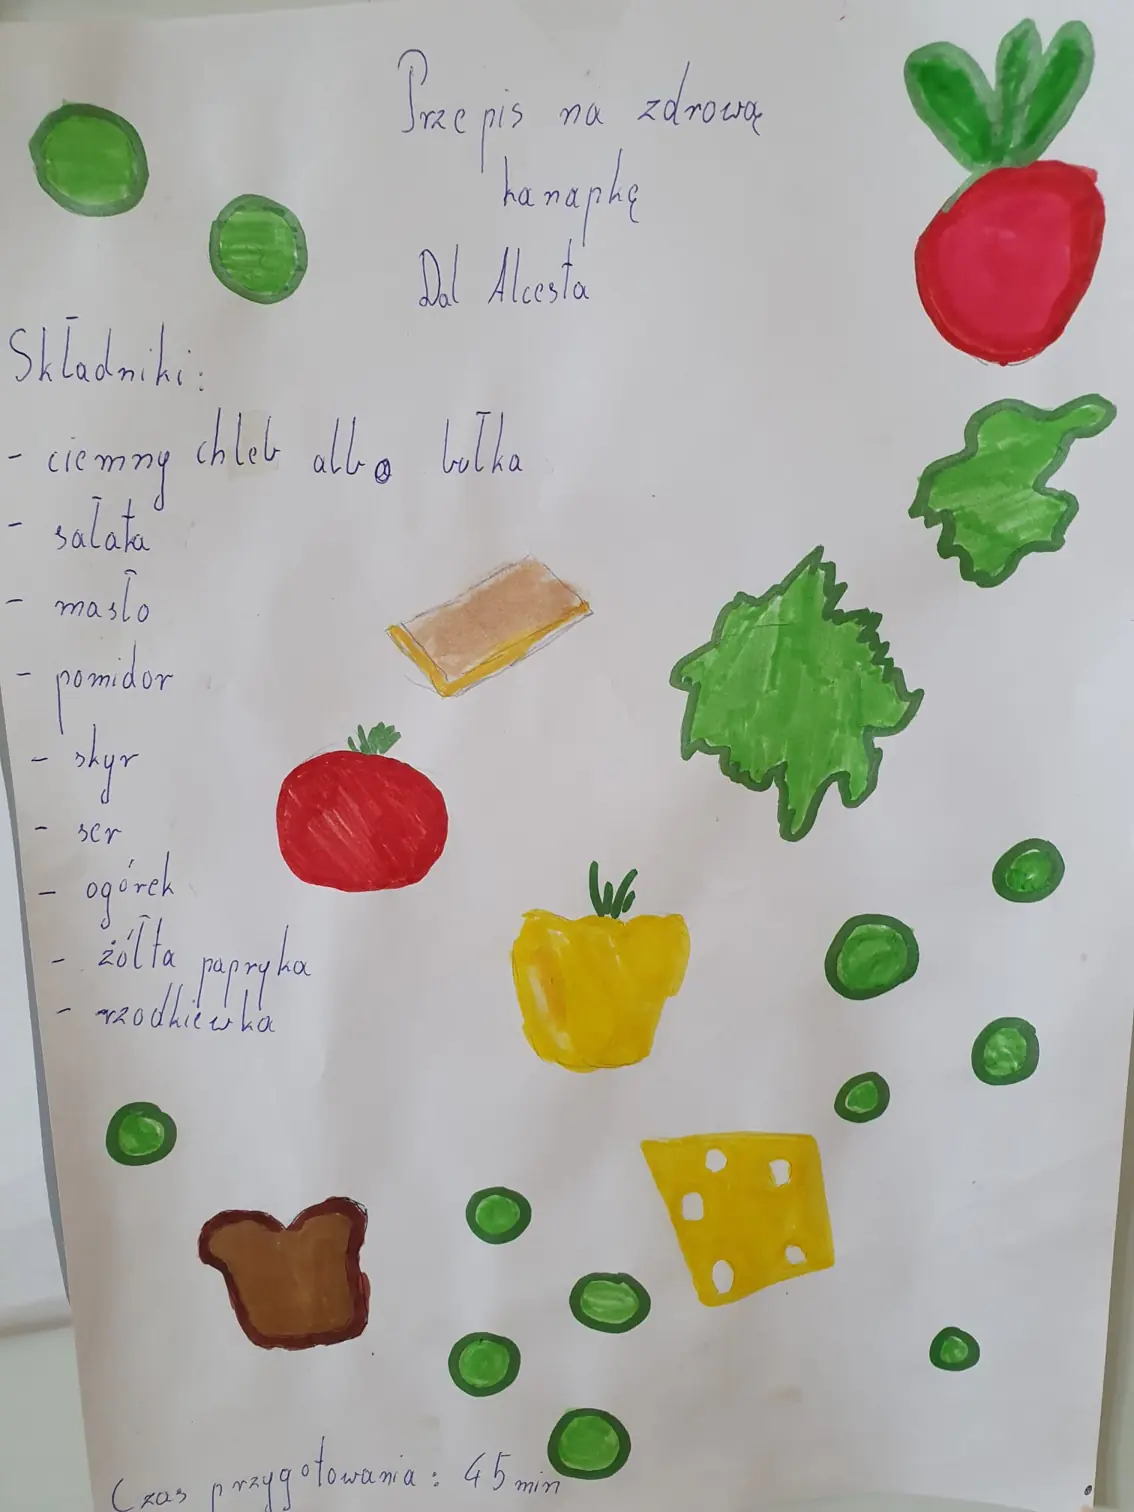 Przepis na zdrową
kanapkę
Dal Alcesta
Składniki:
- ciemny chleb albo bułka
- sałata
- masło
- pomidor
- skyr
- ser
- ogórek
- żółta papryka
- rzodkiewka
Czas przygotowania: 45 min